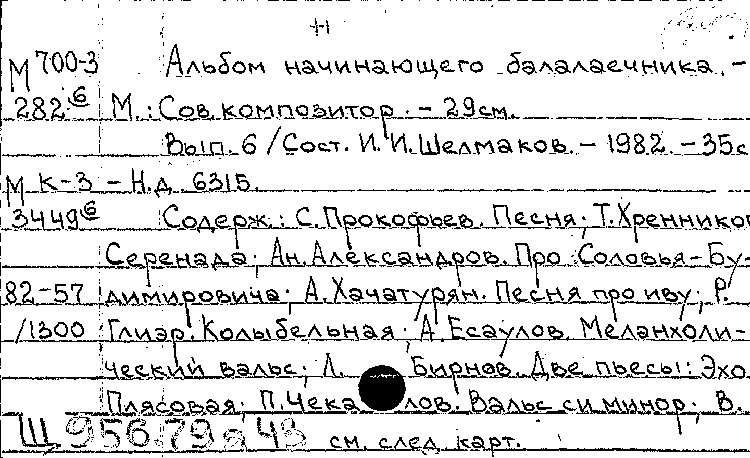 М 700-3 Альбом начинающего балалаечника. –
282 б М.: Сов. композитор. – 29см.
Вып. 6 / Сост. И. И. Шелмаков. – 1982. – 35с
М К-3 – Н.д. 6315.
3449 б Содерж.: С. Прокофьев. Песня; Т. Хренников
Серенада; Ан. Александров. Про Соловья-Бу-
82-57 димировича; А. Хачатурян. Песня про иву; Р.
/1300 Глиэр. Колыбельная; А. Есаулов. Меланхоли-
ческий вальс; Л. Бирнов. Две пьесы: Эхо
Плясовая; П. Чека лов. Вальс си минор; В.
Щ 956.79 я 43 см. след. карт.